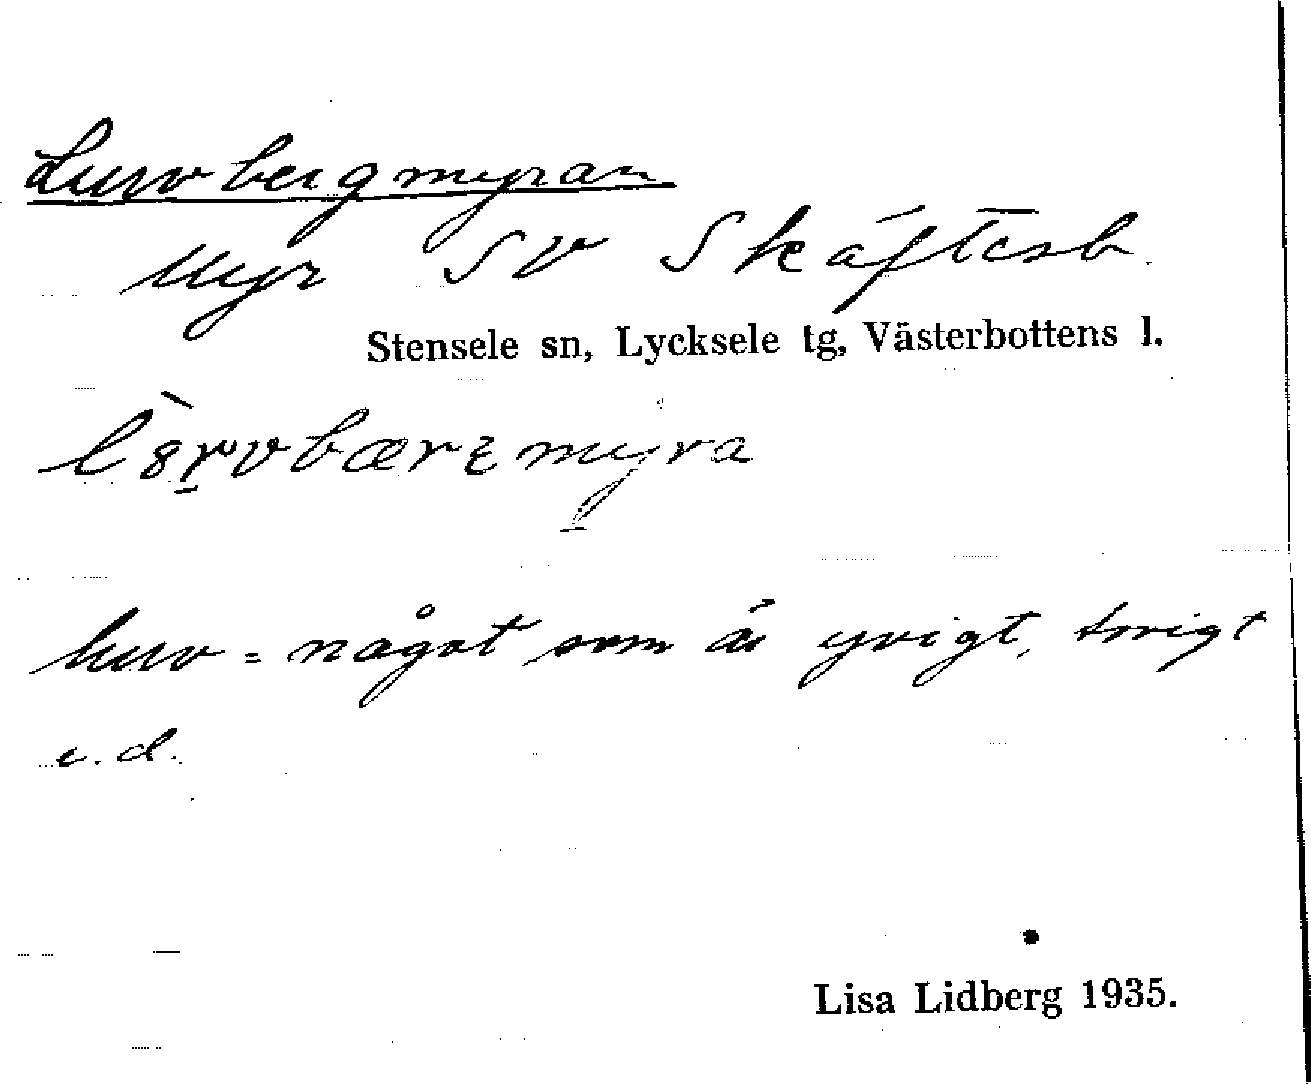 Lurvbergmyran
Myr SV Skäftesb.
Stensele sn, Lycksele tg, Västerbottens l.
lurv = något som är yvigt, torrigt
e. d.
Lisa Lidberg 1935.